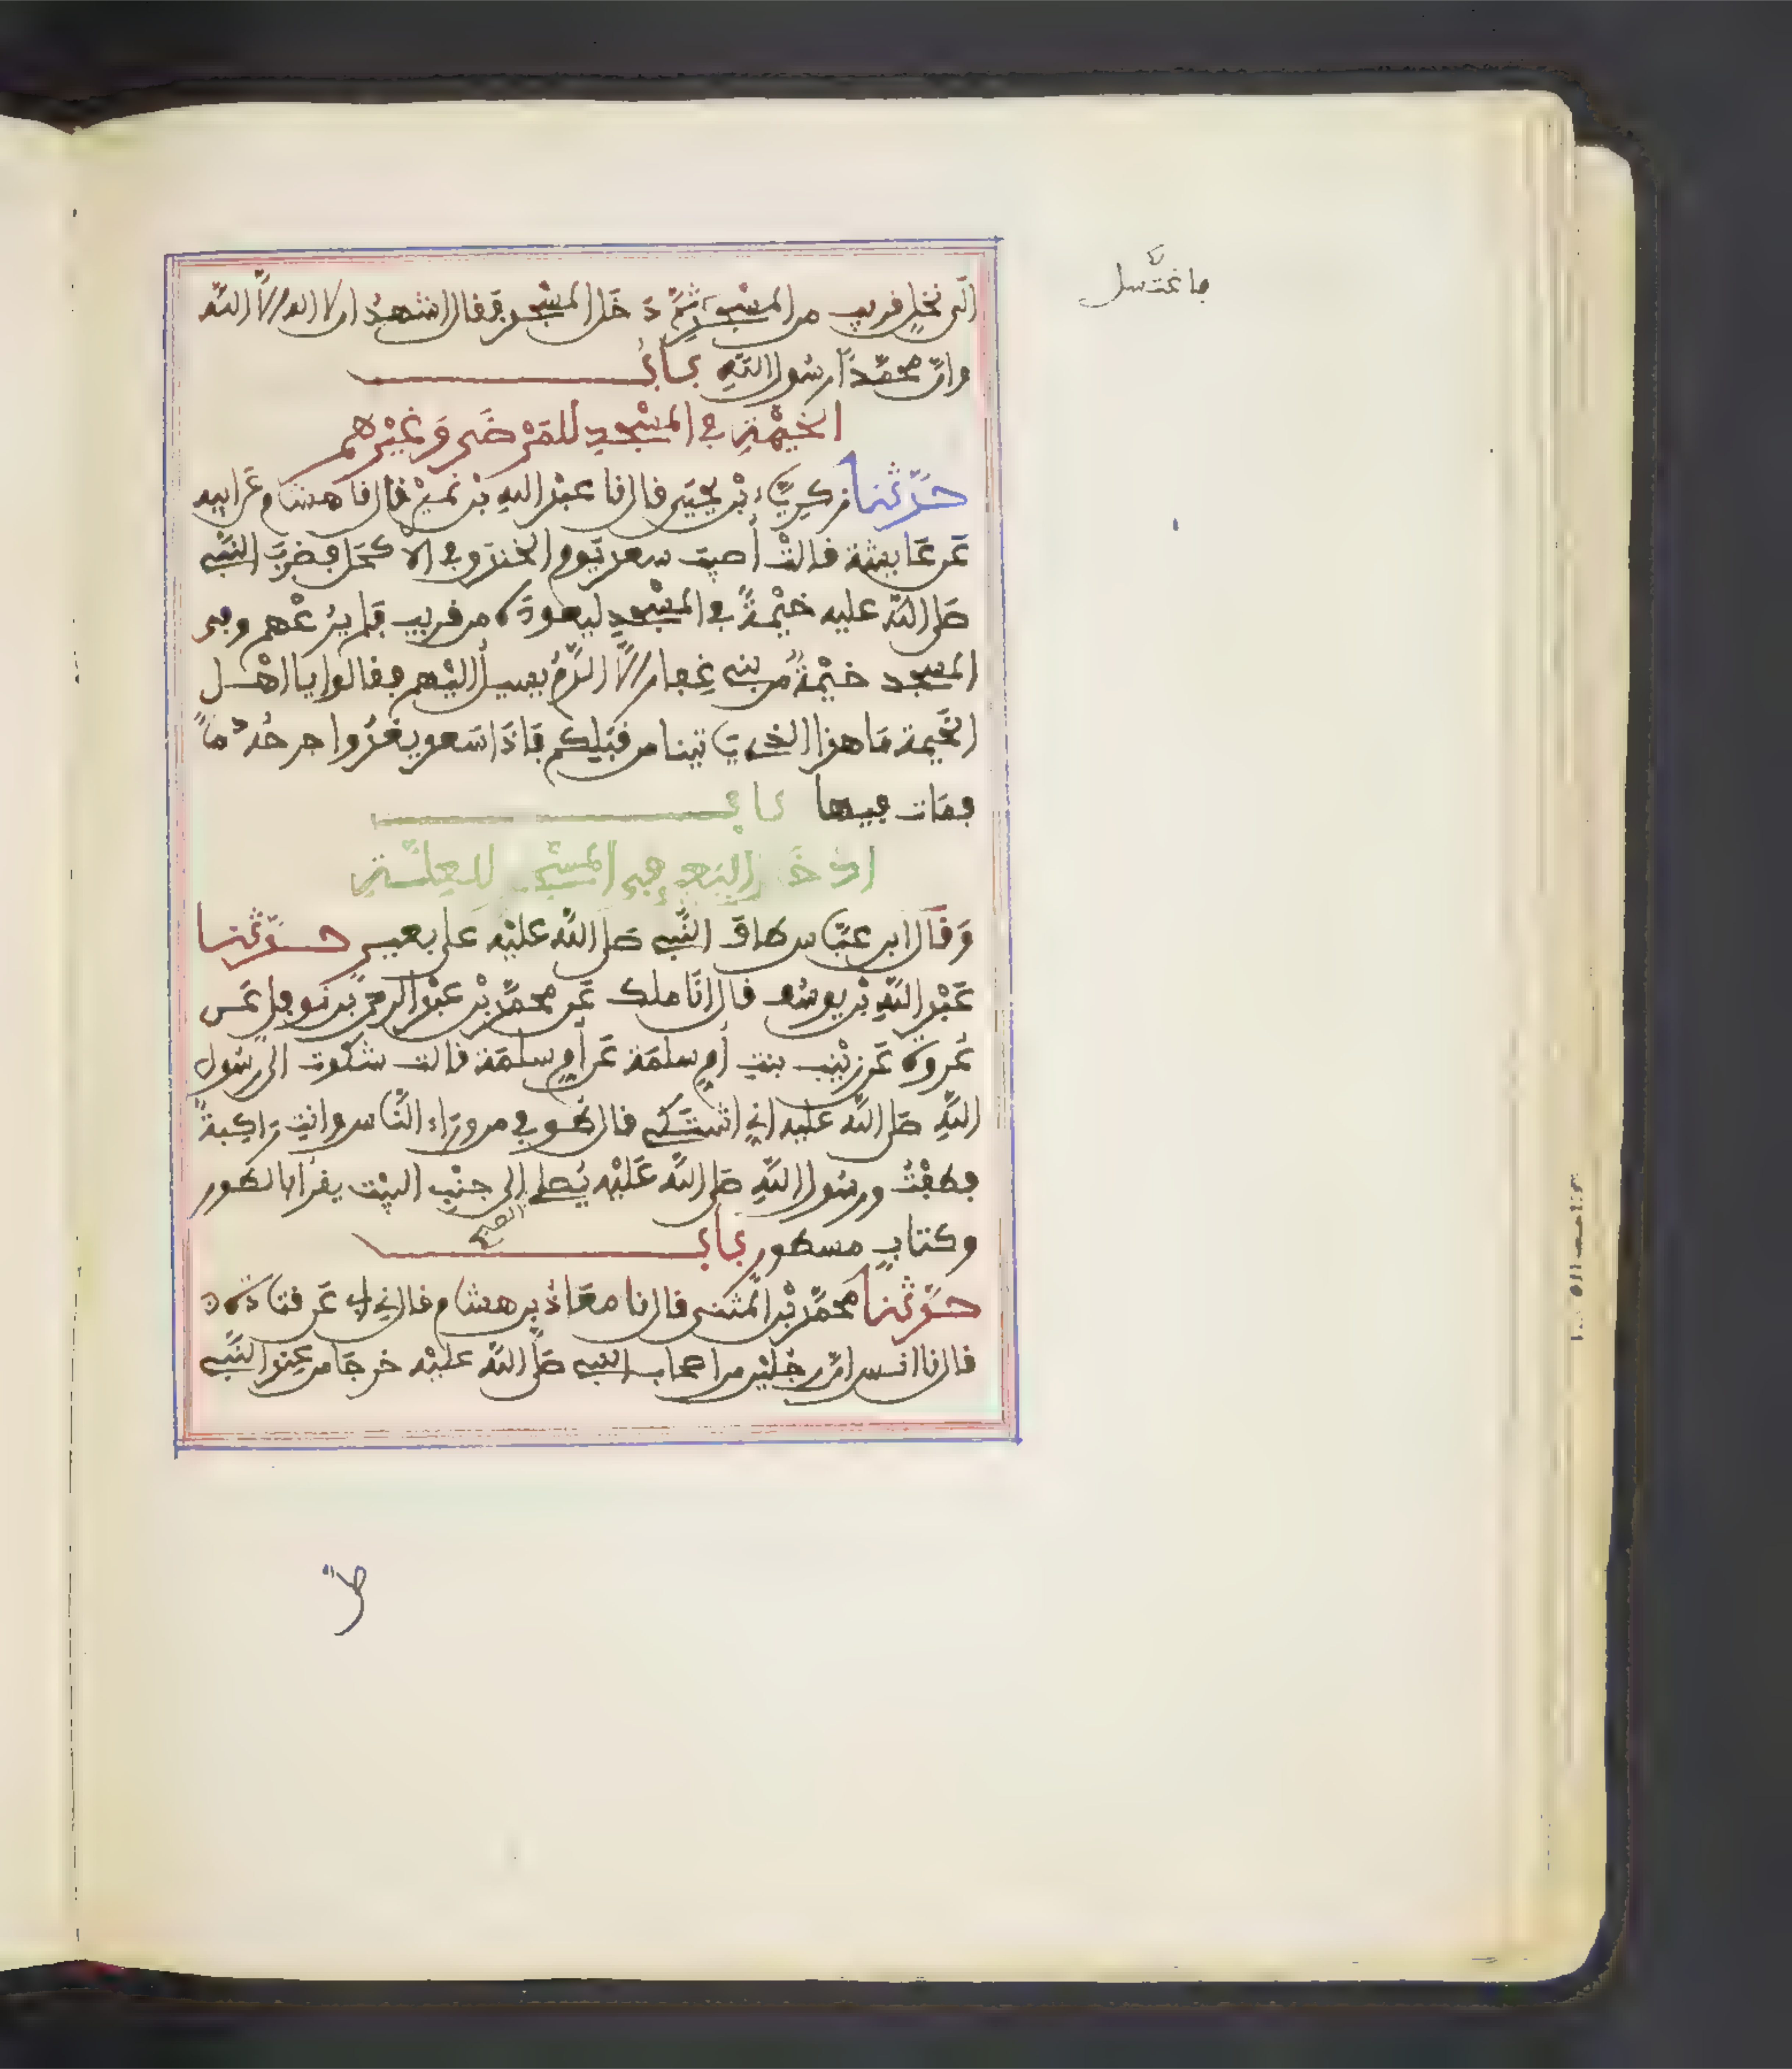 الى نخل قريب من المسجد ثم دخل المسجد فقال اشهد ان لا اله الا الله
فاغتسل
وانّ محمّداً رسول اللهِ بابُ
الخيْمةِ في المسْجدِ للمَرْضَى وَغيْرهم
حدّثنا زكرِيّاء بْن يحيَى قال نا عبْد اللهِ بْن نميْر قال نا هشام عَن ابيه
عَن عَايشة قالتْ أصيبَ سعد يَوم الخندق في الاكحَل فضربَ النّبي
صَلى اللّه عليه خيْمةً في المسْجدِ ليعودَه من قريب فلم يَرُعْهم وفى
المسجد خيْمةٌ من بنى غِفار الاّ الدّمُ يسيلُ اليْهم فقالوا يا اهْل
الخَيمة مَا هذا الذي ياتينا من قبَلِكم فاذَا سَعد يغذُوا جرحُهُ دماً
فمَات فيها باب
ادخَال البَعير في المسْجد للعِلّةِ
وَقَال ابن عبّاس طافَ النّبي صَلى اللّه عليْه عَلى بعير حدّثنا
عَبْد اللّهِ بْن يوسُف قال انَا ملك عَن محمّد بْن عبْد الرحمن بن نَوفل عَن
عُروة عَن زيْنب بنتِ أمِ سلمَة عَن أمِ سلمَة قالت شكوت الى رسُول
اللّهِ صَلى اللّه عليه اني اشتكى قال طُوفي من ورَاء النّاس وانتِ رَاكِبةً
فطفْتُ ورسُول اللّهِ صَلى اللّه عَليْه يُصلى الى جنْبِ البيْت يقرَأ بالطور
وكتابٍ مسطور بابُ
حدّثنا محمّد بْن المثنى قال نا معَاذُ بن هشام قال ني ابي عَن قتادَة
قال نا انس انّ رجُليْن من اصحاب النبي صَلّى اللّه عليْه خرجَا من عِند النّبي